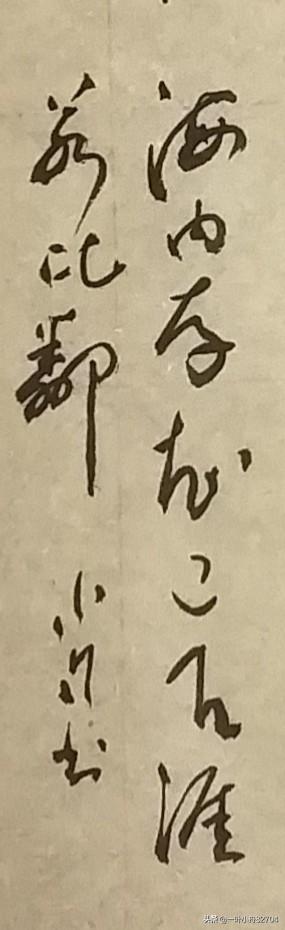 海内存知己天涯
若比鄰
小舟书
头条@一叶小舟52704